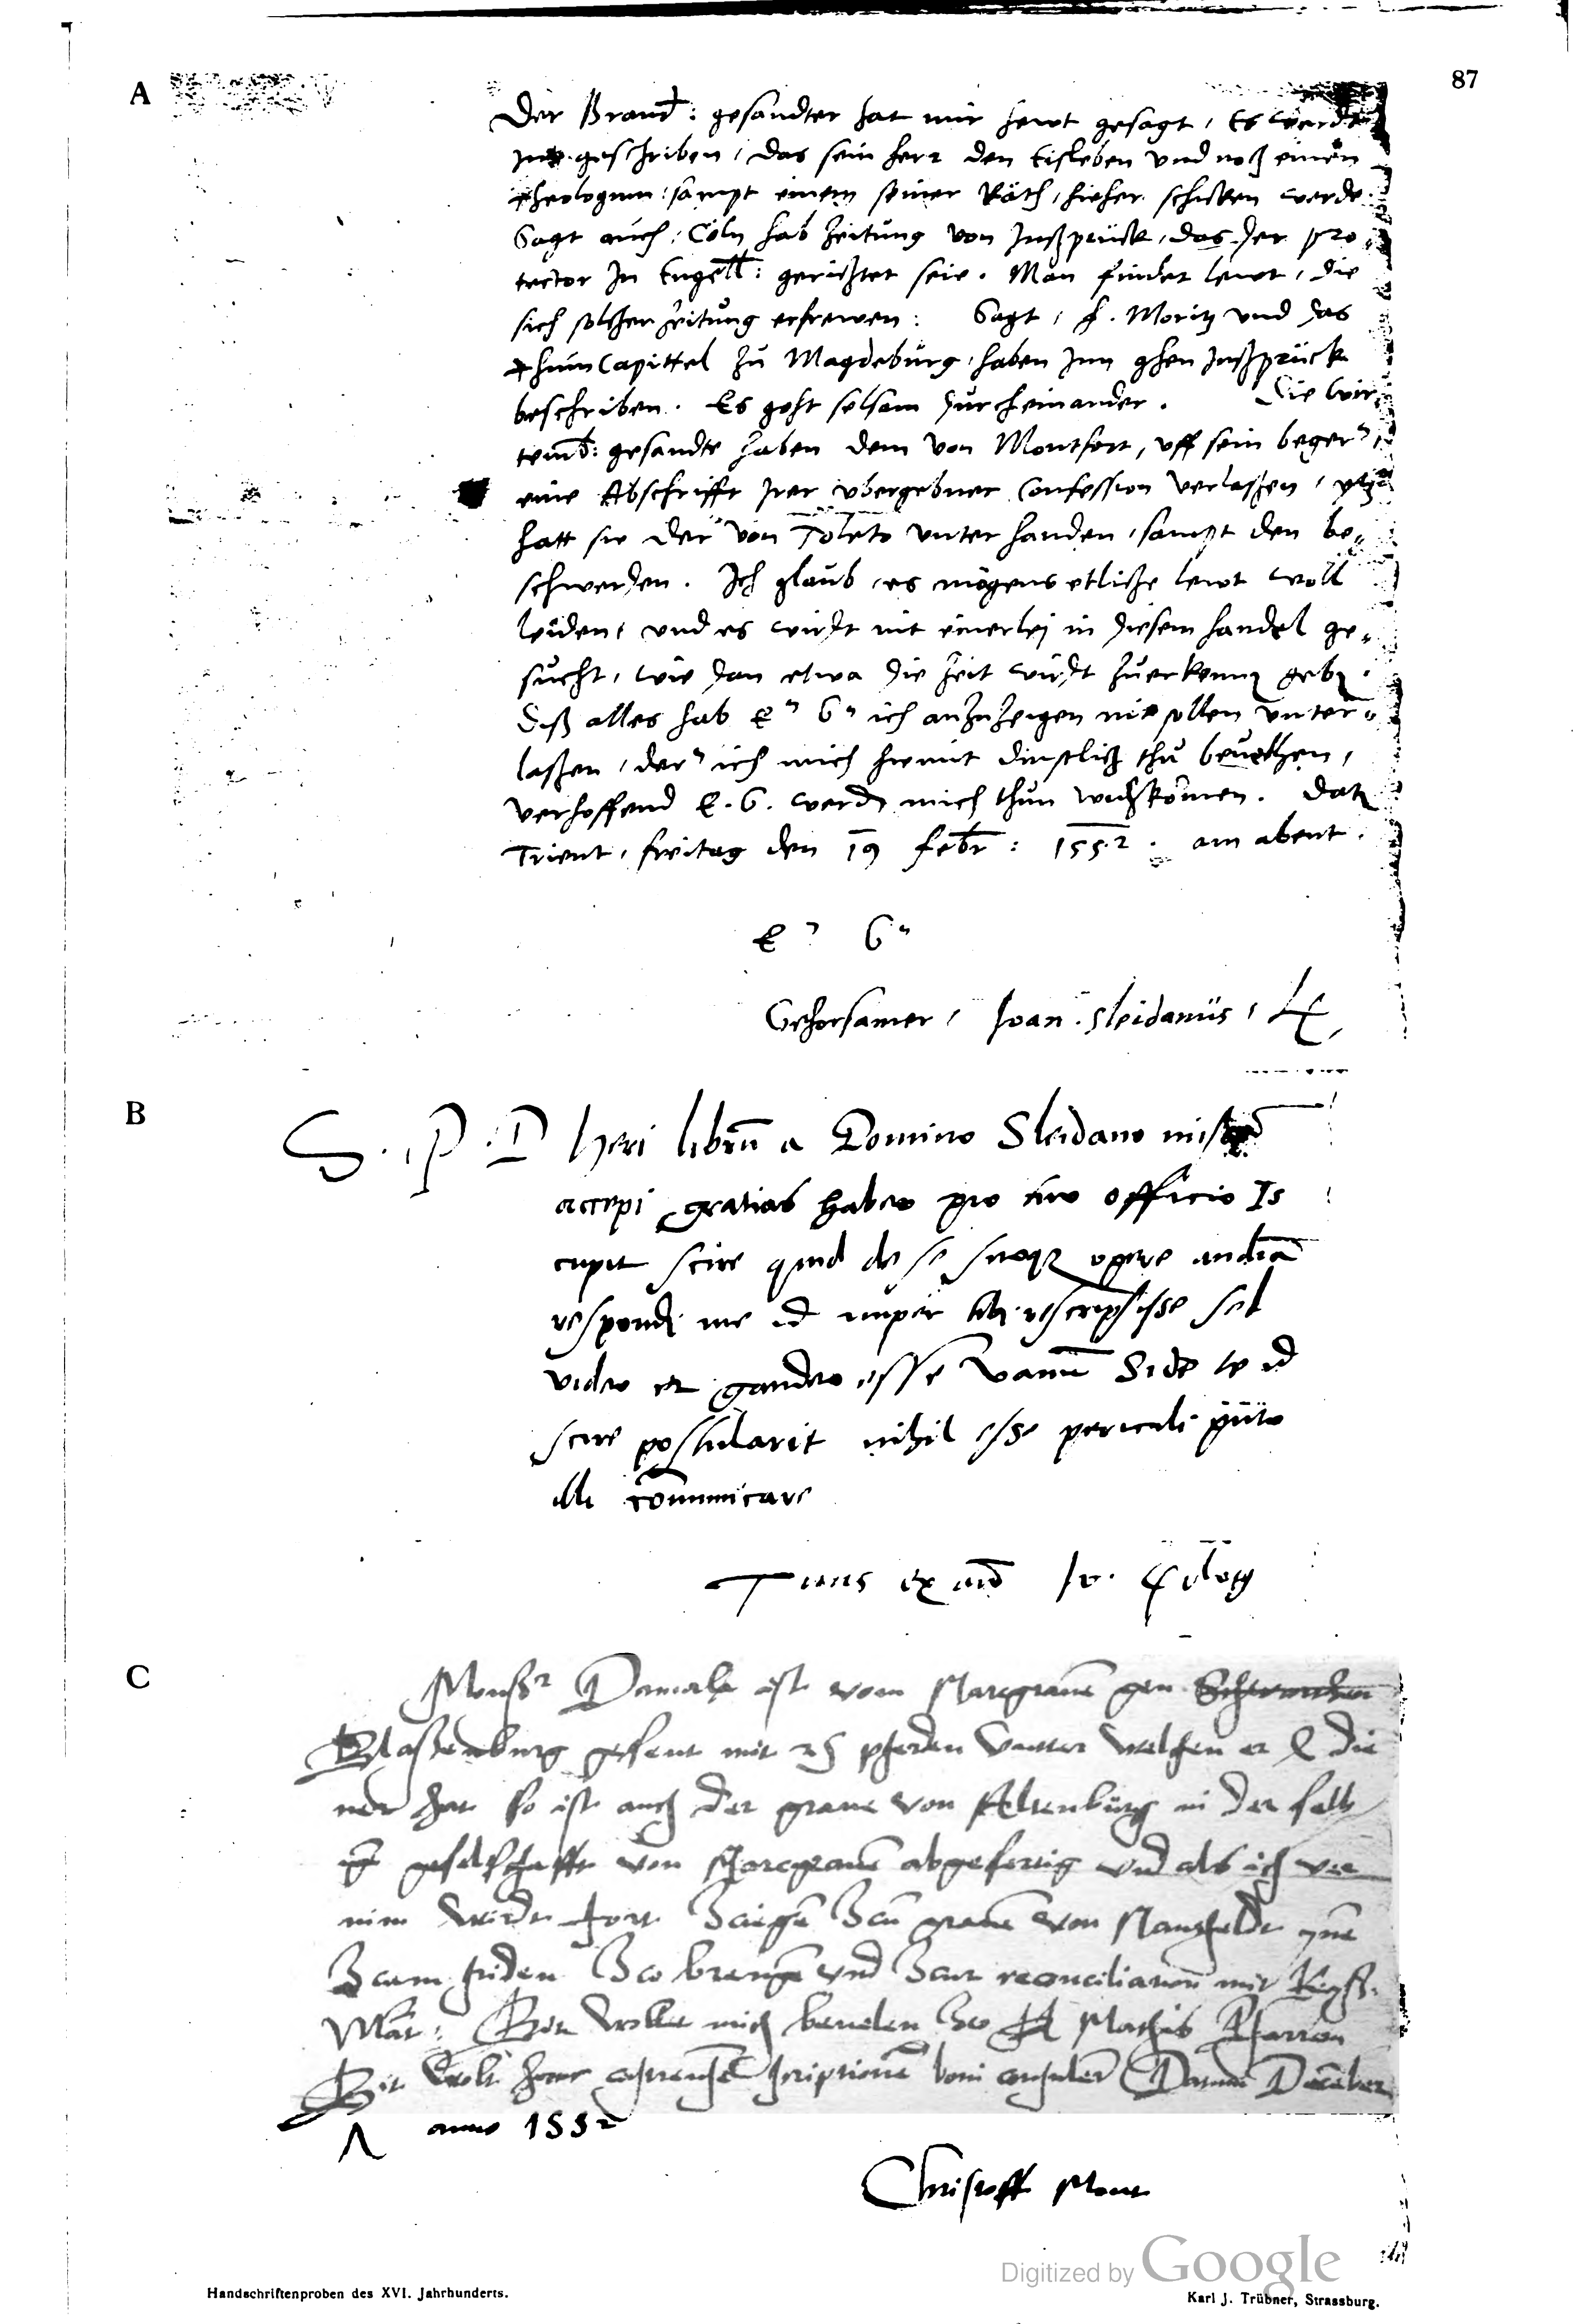 87
A
Der Brand: gesandter hat mir hewt gesagt, Es werde
Im geschriben, das sein herr den Eisleben und noch einen
theologum, sampt einem seiner Räth, hieher schicken werde.
Sagt auch, Cöln hab zeitung von Inßpruck, das der pro
tector In Engell: gerichtet seie. Man findet lewt, die
sich solcher zeitung erfrewen: Sagt, h. Moritz und das
thum Capittel zu Magdeburg, haben Inn ghen Inßprück
beschriben. Es geht selsam durcheinander. Die Wir
temb: gesandte haben dem von Montfort, uff sein beger,
eine Abschrifft Irer ubergebner Confession verlaßen, ytz
hatt sie der von Toleto unter handen, sampt den be„
schwerden. Ich glaub, es mögens etliche lewt woll
leiden, und es wirdt nit einerlej in diesem handel ge„
sucht, wie dan etwa die zeit wirdt zuerkennen geben.
Diß alles hab E G ich anzuzeigen nit sollen unter„
laßen, der ich mich hiemit dinstlich thu bevelhen,
verhoffend E. G. werden mich thun
Trient, freitag den 19 febr: 1552. am abent.
E G
Gehorsamer, Joan. Sleidanus,
B
S. P. D Heri librū a Domino Sleidano
accepi gratias habeo pro tuo officio Is
cupit scire quid de se suoq opere audiā
respondi me id nuper tibi rescripsisse sed
video et gaudeo esse vanū Si de te id
scire postularit nihil esse periculi puto
illi cōmunicare
Tuus ex
C
Monsr Damala ist vom Marcgrauē gen
Blassenburg gesent mit 25 pferden unter welchen er die
ner hat so ist auch der graue von Altenburg in der selb
geselschafft von Marcgrauē abgefertig und als ich ver
nim wirdt fort graue von Mansfeldt
friden und reconciliation mit Keyß.
Mat: Got wolle mich bevelen h Mathis Pfarrer
scriptionē boni consulere Datum Decēber
anno 1552
Christoff Mont
Digitized by Google
Handschriftenproben des XVI. Jahrhunderts.
Karl J. Trübner, Strassburg.